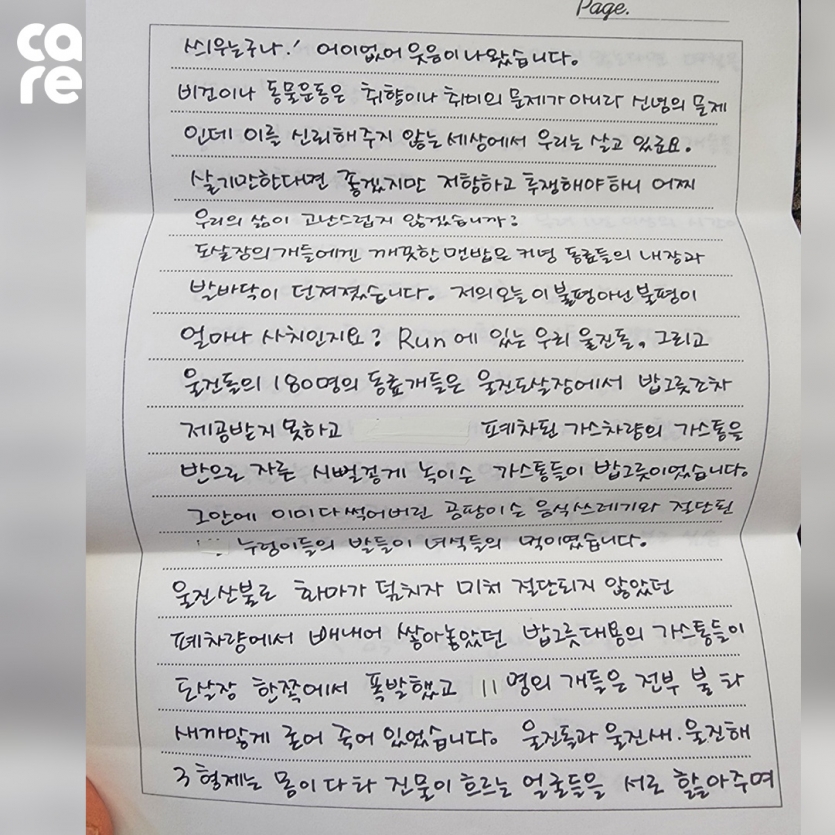 care
Page.
씌우는구나.' 어이없어 웃음이 나왔습니다.
비건이나 동물운동은 취향이나 취미의 문제가 아니라 신념의 문제
인데 이를 신뢰해주지 않는 세상에서 우리는 살고 있군요.
살기만한다면 좋겠지만 저항하고 투쟁해야하니 어찌
우리의 삶이 고난스럽지 않겠습니까?
도살장의 개들에겐 깨끗한 맨밥은 커녕 동료들의 내장과
발바닥이 던져졌습니다. 저의 오늘 이 불평아닌 불평이
얼마나 사치인지요? Run에 있는 우리 울진돌, 그리고
울진돌의 180명의 동료개들은 울진도살장에서 밥그릇조차
제공받지 못하고 폐차된 가스차량의 가스통을
반으로 자른 시뻘겋게 녹이슨 가스통들이 밥그릇이었습니다.
그안에 이미 다 썩어버린 곰팡이슨 음식쓰레기와 절단된
누렁이들의 발들이 녀석들의 먹이였습니다.
울진산불로 화마가 덮치자 미처 절단되지 않았던
폐차량에서 빼내어 쌓아놓았던 밥그릇대용의 가스통들이
도살장 한쪽에서 폭발했고 11명의 개들은 전부 불 타
새까맣게 굳어 죽어 있었습니다. 울진록과 울진새.울진해
3형제는 몸이 다 타 진물이 흐르는 얼굴들을 서로 핥아주며